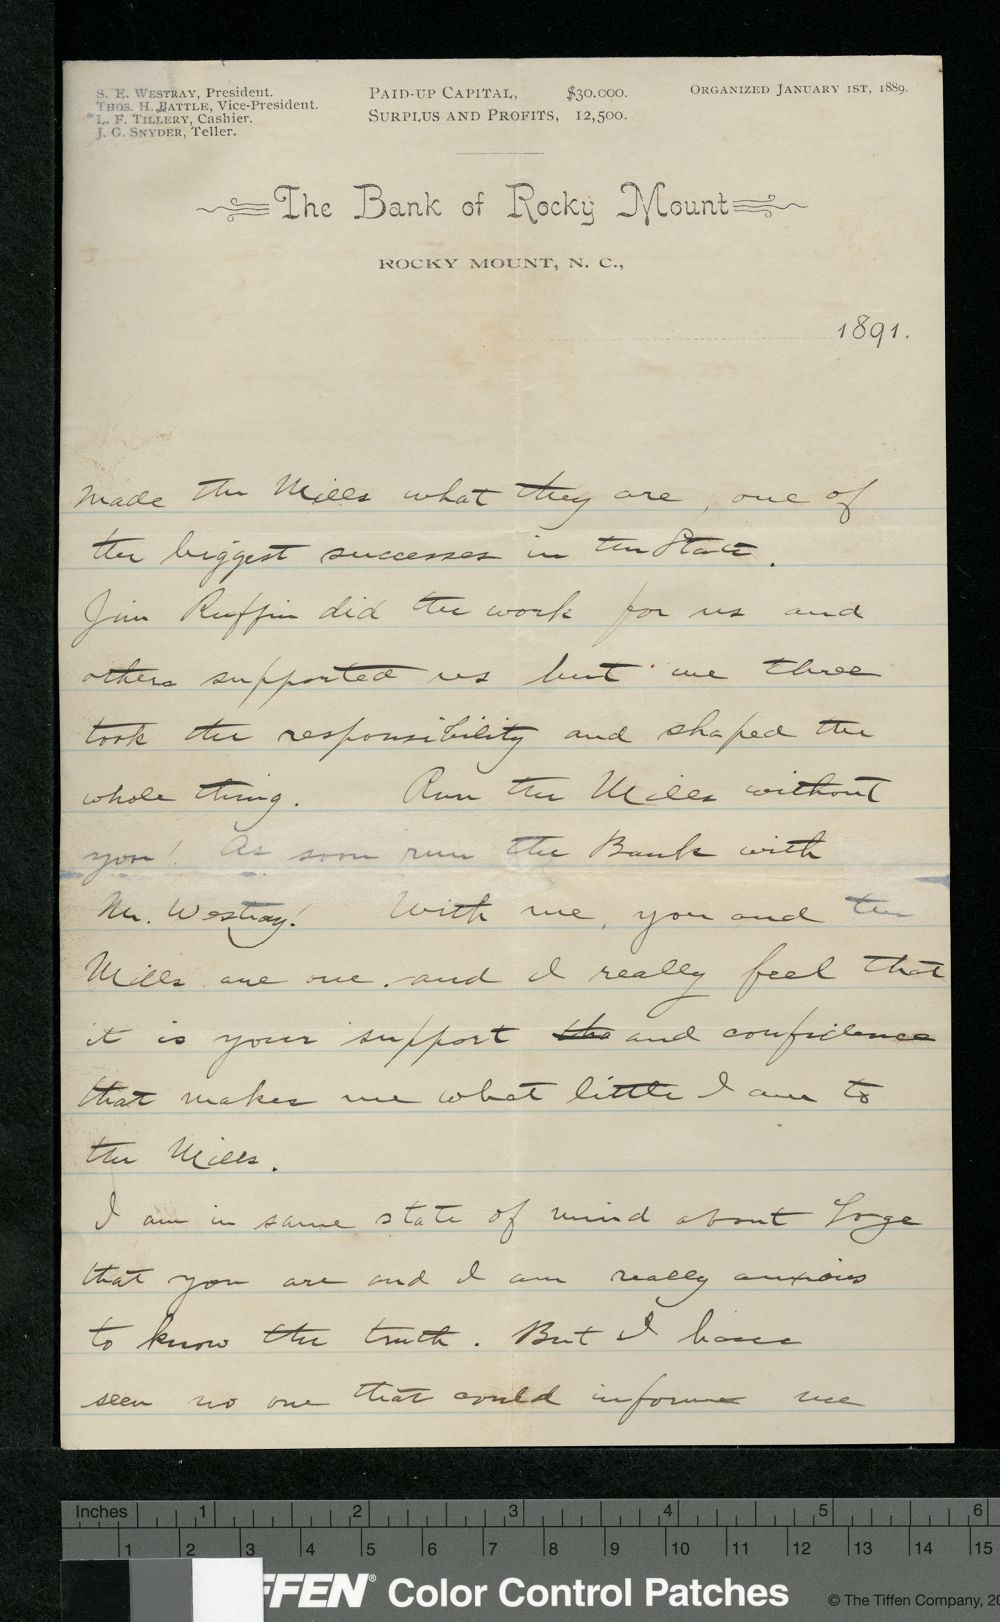 S. E. WESTRAY, President.
THOS. H. BATTLE, Vice-President.
L. F. TILLERY, Cashier.
J. G. SNYDER, Teller.
PAID-UP CAPITAL, $30.000.
SURPLUS AND PROFITS, 12,500.
ORGANIZED JANUARY 1ST, 1889.
The Bank of Rocky Mount
ROCKY MOUNT, N. C.,
1891.
made the Mills what they are, one of
the biggest successes in the State.
Jim Ruffin did the work for us and
others supported us but we three
took the responsibility and shaped the
whole thing. Run the Mills without
you! As soon run the Bank with
Mr. Westray! With me, you and the
Mills are one. and I really feel that
it is your support the and confidence
that makes me what little I am to
the Mills.
I am in same state of mind about
that you are and I am really anxious
to know the truth. But I have
seen no one that could informe me
Inches 1 2 3 4 5 6
1 2 3 4 5 6 7 8 9 10 11 12 13 14 15
FFEN® Color Control Patches
© The Tiffen Company, 20